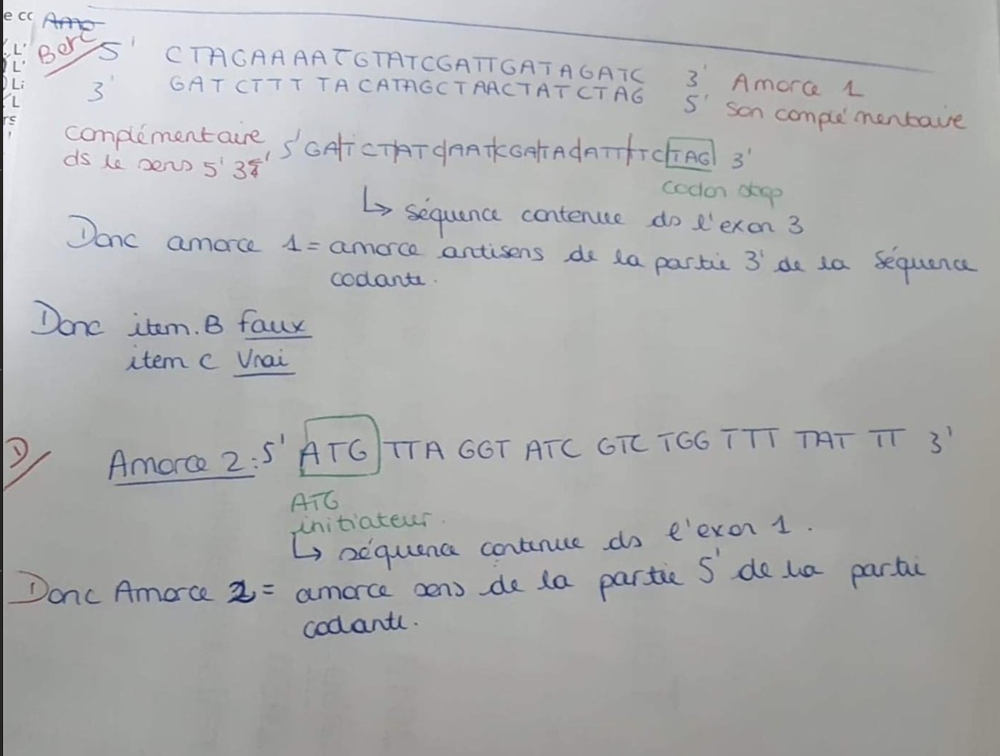 e cc Amo
L'
L'
Li
L
rs
B et C 5' CTAGAAAATGTATCGATTGATAGATC 3' Amorce 1
3' GATCTTTTACATAGCTAACTATCTAG 5' son complémentaire
complémentaire 5' GATCTATCAATCGATACATTTTCTAG 3'
ds le sens 5' 3'
codon stop
↳ séquence contenue ds l'exon 3
Donc amorce 1 = amorce antisens de la partie 3' de la séquence
codante.
Donc item.B faux
item C Vrai
D/ Amorce 2: 5' ATG TTA GGT ATC GTC TGG TTT TAT TT 3'
ATG
initiateur.
↳ séquence contenue ds l'exon 1.
Donc Amorce 2 = amorce sens de la partie 5' de la partie
codante.